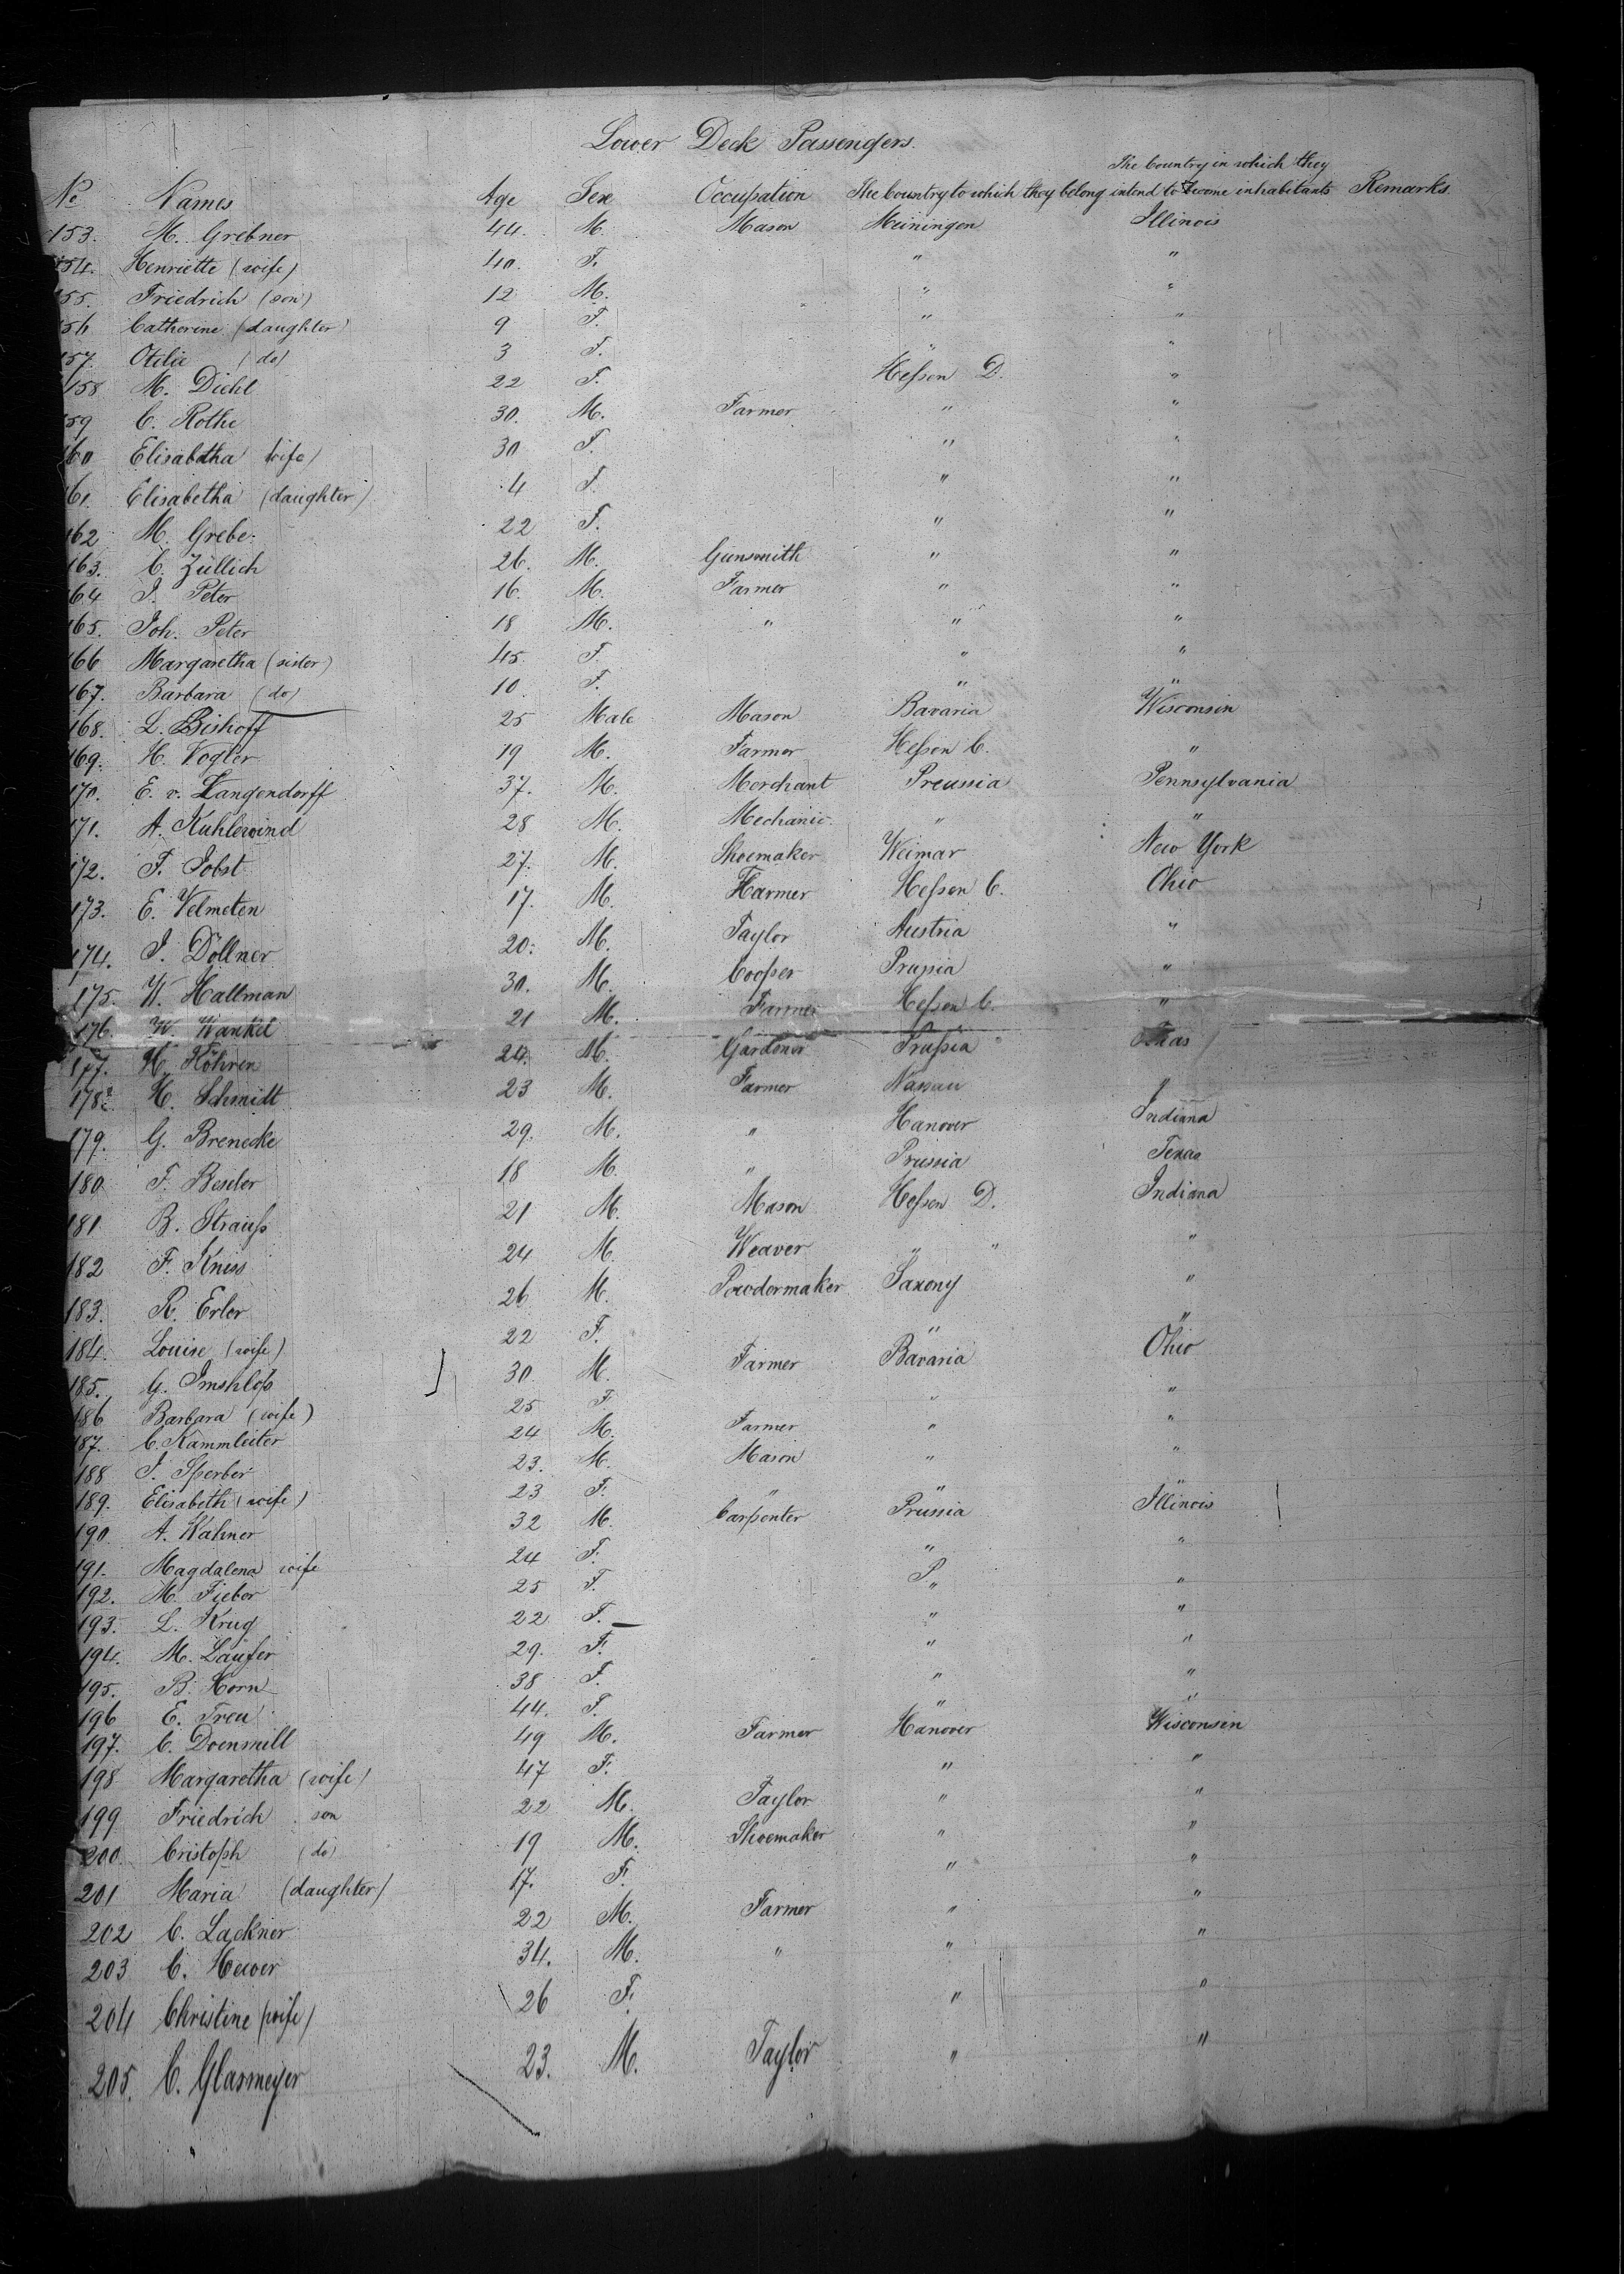 Lower Deck Passengers.
The Country in which they
No Names Age Sex Occupation The Country to which they belong intend to become inhabitants Remarks.
153. M. Grebner 44. M. Mason Meiningen Illinois
154. Henriette (wife) 40. F. " "
155. Friedrich (son) 12 M. " "
156 Catherine (daughter) 9 F. " "
157. Otilie (do) 3 F. " "
158 M. Diehl 22 F. Heſsen D. "
159 C. Rothe 30. M. Farmer " "
160 Elisabetha wife) 30 F. " "
161. Elisabetha (daughter) 4 F. " "
162 M. Grebe 22 F. " "
163. C. Züllich 26. M. Gunsmith " "
164 J. Peter 16. M. Farmer " "
165. Joh. Peter 18 M. " " "
166 Margaretha (sister) 45. F. " "
167. Barbara (do) 10 F. " "
168. L. Bishoff 25 Male Mason Bavaria Wisconsin
169. H. Vogler 19 M. Farmer Heſsen C. "
170. E. v. Langendorff 37. M. Merchant Preussia Pennsylvania
171. A. Kuhlewind 28 M. Mechanic. " "
172. F. Jobst 27. M. Shoemaker Weimar New York
173. E. Velmeten 17. M. Farmer Heſsen C. Ohio
174. J. Döllner 20. M. Taylor Austria "
175. W. Hallman 30. M. Cooper Pruſsia "
176. W. Wankel 21 M. Farmer Heſsen C. "
177. H. Höhren 24. M. Gardener Pruſsia Texas
178. H. Schmidt 23 M. Farmer Nassau "
179. G. Brenecke 29. M. " Hanover Indiana
180 F. Beseler 18 M. " Prussia Texas
181 B. Strauſs 21 M. Mason Heſsen D. Indiana
182 F. Kniss 24 M. Weaver " " "
183. R. Erler 26 M. Powdermaker Saxony "
184. Louise (wife) 22 F. " "
185. G. Imshloſs 30 M. Farmer Bavaria Ohio
186 Barbara (wife) 25 F. " "
187. C. Kammleiter 24 M. Farmer " "
188 J. Sperber 23. M. Mason " "
189. Elisabeth (wife) 23 F. " " "
190 A. Wahner 32 M. Carpenter Prussia Illinois
191. Magdalena wife 24 F. " "
192. M. Fieber 25 F. P. " "
193. L. Krug 22 F. " "
194. M. Laufer 29. F. " "
195. B. Horn 38 F. " "
196 E. Treu 44. F. " "
197. C. Doensmill 49 M. Farmer Hanover Wisconsin
198 Margaretha (wife) 47 F. " "
199 Friedrich son 22 M. Taylor " "
200. Cristoph (do) 19 M. Shoemaker " "
201 Maria (daughter) 17. F. " "
202 C. Lackner 22 M. Farmer " "
203 C. Hewer 34. M. " " "
204 Christine (wife) 26 F. " "
205. C. Glasmeyer 23. M. Taylor " "